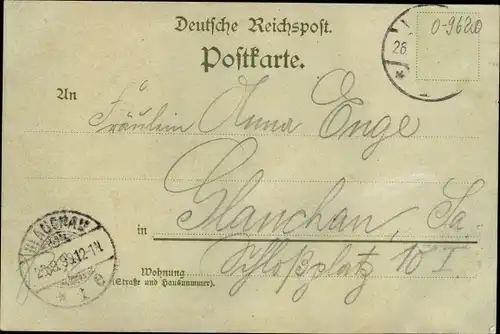 Deutsche Reichspost.
Postkarte.
0-9680
26
An
Fräulein Anna Enge
in Glauchau, Sa.
Schloßplatz 10 I.
Wohnung
(Straße und Hausnummer).
GLAUCHAU
26.8.99.12-1N.
* 1 e